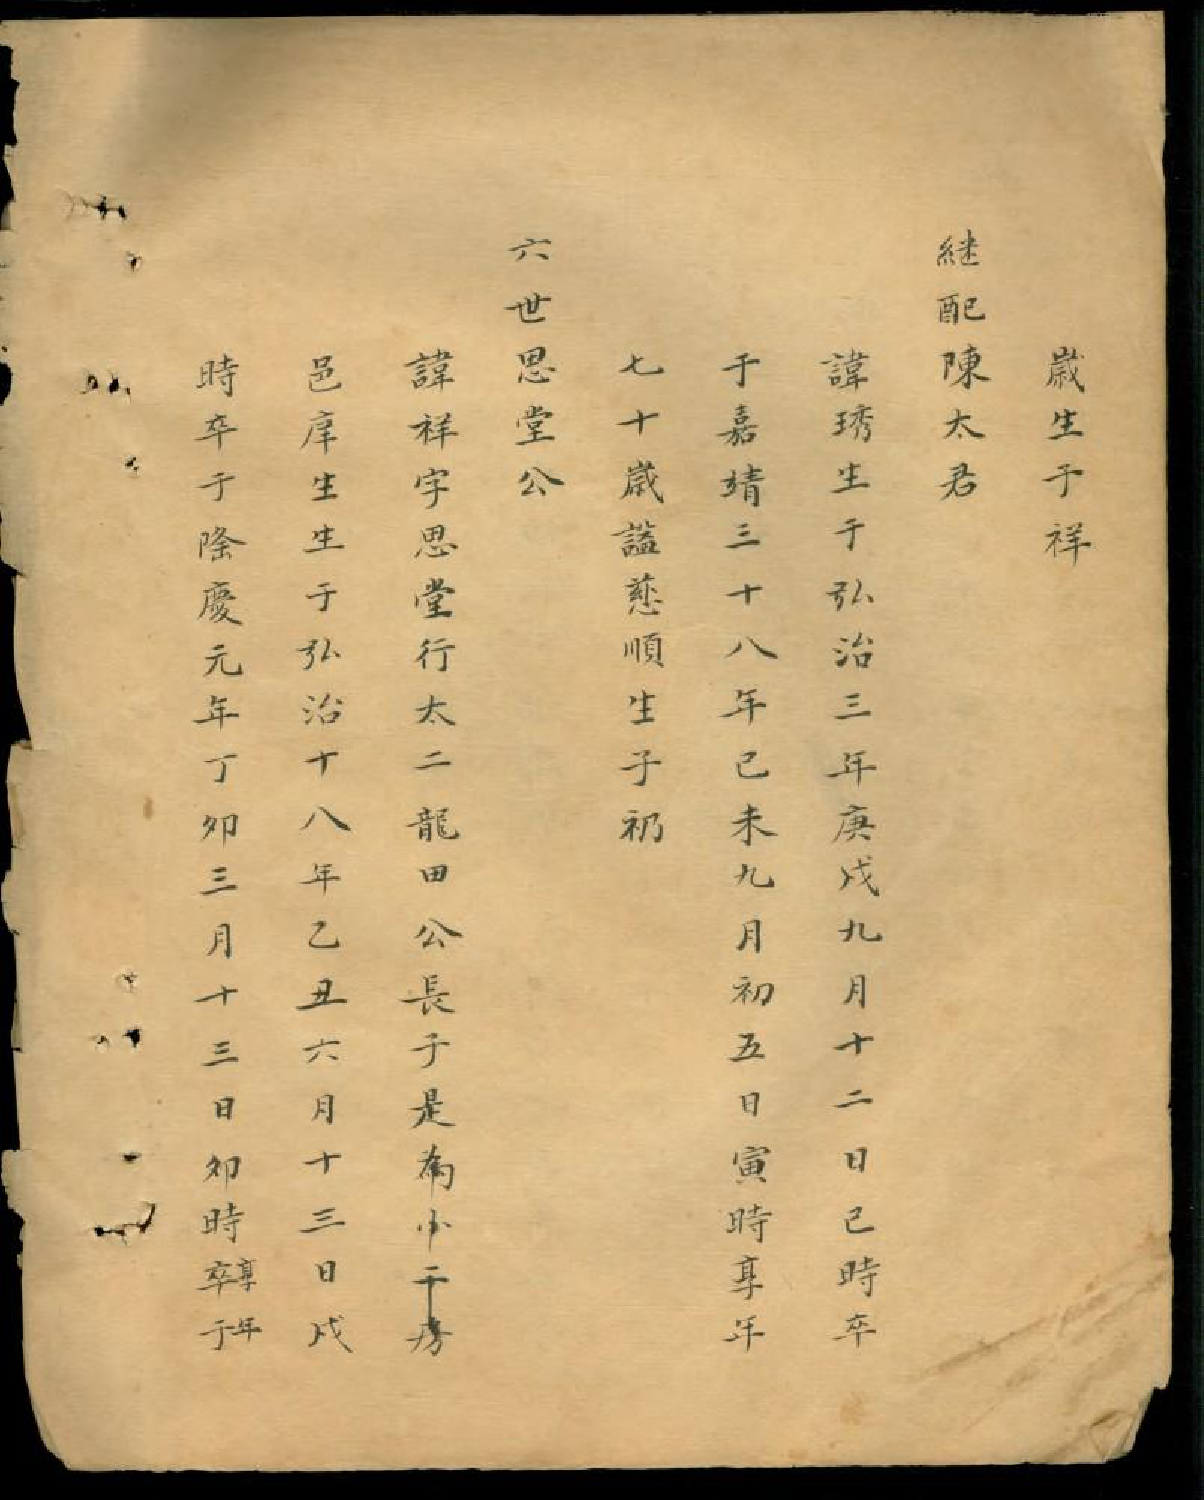 歲生子祥
継配陳太君
諱琇生于弘治三年庚戌九月十二日巳時卒
于嘉靖三十八年己未九月初五日寅時享年
七十歲謚慈順生子礽
六世思堂公
諱祥字思堂行太二龍田公長子是為小干房
邑庠生生于弘治十八年乙丑六月十三日戌
時卒于隆慶元年丁卯三月十三日卯時享年卒于